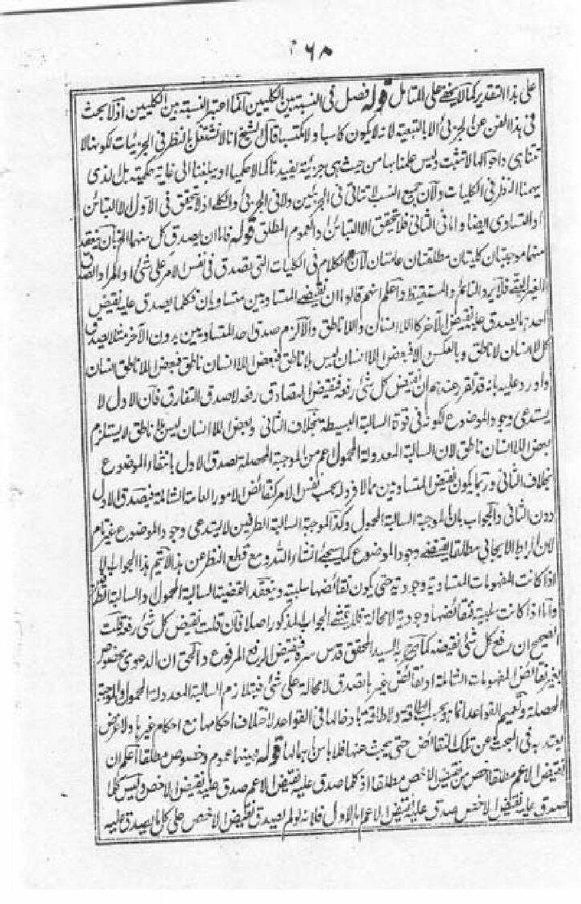 ٦٨
على هذا التقدير كما لا يخفى على المتأمل قوله فصل فى النسبة بين الكليين انما اعتبر النسبة بين الكليين اذ لا يبحث
فى هذا الفن عن الجزئى الا بالتبعية لانه لا يكون كاسبا ولا مكتسبا قال الشيخ انا لا نشتغل بالنظر فى الجزئيات لكونها لا
تتناهى واحوالها لا تثبت وليس علمنا بها من حيث هى جزئية يفيدنا كمالا حكميا او يبلغنا الى غاية حكمية بل الذى
يهمنا النظر فى الكليات ولان جميع النسب لا تتاتى فى الجزئيين ولا فى الجزئى والكلى اذ لا تحقق فى الاول الا التباين
او التساوى ايضا واما فى الثانى فلا تحقق الا التباين او العموم المطلق قوله فاما ان يصدق كل منهما
منهما موجبتان كليتان مطلقتان عامتان لان الكلام فى الكليات التى يصدق فى نفس الامر على شئ او المراد
فلا يرد النائم والمستيقظ واعلم انهم قالوا ان نقيضى المتساويين متساويان فكلما يصدق عليه نقيض
احدهما يصدق عليه نقيض الآخر كاللا انسان واللا ناطق والا لزم صدق احد المتساويين بدون الآخر مثلا يصدق
كل لا انسان لا ناطق وبالعكس والا فبعض اللا انسان ليس بلا ناطق فبعض اللا انسان ناطق فبعض اللا ناطق انسان
واورد عليه بانه قد تقرر عندهم ان نقيض كل شئ رفعه فنقيض التصادق رفعه لا صدق التفارق فان الاول لا
يستدعى وجود الموضوع لكونه فى قوة السالبة البسيطة بخلاف الثانى وبعض اللا انسان ليس بلا ناطق لا يستلزم
بعض اللا انسان ناطق لان السالبة المعدولة المحمول اعم من الموجبة المحصلة بصدق الاول بانتفاء الموضوع
بخلاف الثانى وربما يكون نقيض المتساويين مما لا فرد له بحسب نفس الامر كنقائض الامور العامة الشاملة فيصدق الاول
دون الثانى والجواب بان الموجبة السالبة المحمول وكذا الموجبة السالبة الطرفين لا يستدعى وجود الموضوع غير تام
لان الربط الايجابى مطلقا يقتضى وجود الموضوع كما سيجئ انشاء الله ومع قطع النظر عن هذا لا يتم هذا الجواب الا
اذا كانت المفهومات المتساوية وجودية حتى يكون نقائضها سلبية وينعقد القضية السالبة المحمول والسالبة الطرفين
واما اذا كانت سلبية فنقائضها وجودية لا محالة فلا يتمشى الجواب المذكور اصلا فان قلت نقيض كل شئ رفعه قلت
الصحيح ان رفع كل شئ نقيضه كما صرح به السيد المحقق قدس سره فنقيض الرفع المرفوع والحق ان الدعوى مخصوص
بغير نقائض المفهومات الشاملة اذ نقائض غيرها يصدق لا محالة على شئ فيتلازم السالبة المعدولة المحمول والموجبة
المحصلة وتعميم القواعد انما هو بحسب الطاقة ولا طاقة بادخالها فى القواعد لاختلاف احكامها مع احكام غيرها ولا غرض
يعتد به فى البحث عن تلك النقائض حتى يبحث عنها فلا باس باهمالها قوله فبينهما عموم وخصوص مطلقا اعلم ان
نقيض الاعم مطلقا اخص من نقيض الاخص مطلقا اذ كلما صدق عليه نقيض الاعم صدق عليه نقيض الاخص وليس كلما
صدق عليه نقيض الاخص صدق عليه نقيض الاعم اما الاول فلانه لو لم يصدق نقيض الاخص على كل ما يصدق عليه